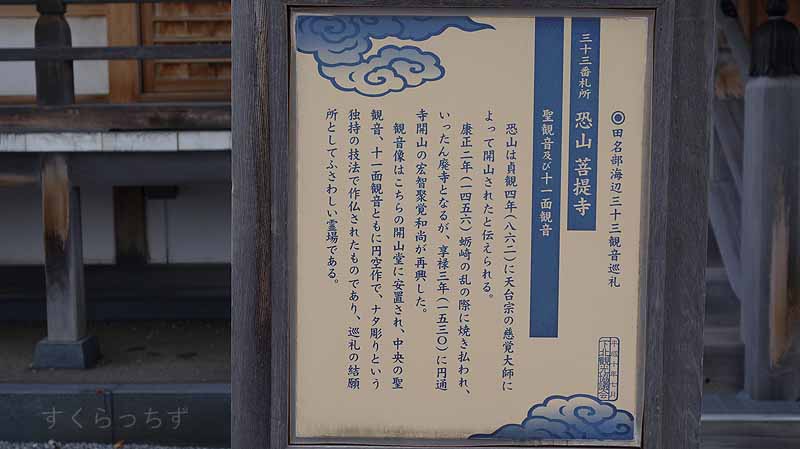 ◎田名部海辺三十三観音巡礼
三十三番札所 恐山 菩提寺
聖観音及び十一面観音
恐山は貞観四年(八六二)に天台宗の慈覚大師に
よって開山されたと伝えられる。
康正二年(一四五六)蛎崎の乱の際に焼き払われ、
いったん廃寺となるが、享禄三年(一五三〇)に円通
寺開山の宏智聚覚和尚が再興した。
観音像はこちらの開山堂に安置され、中央の聖
観音、十一面観音ともに円空作で、ナタ彫りという
独特の技法で作仏されたものであり、巡礼の結願
所としてふさわしい霊場である。
すくらっちず